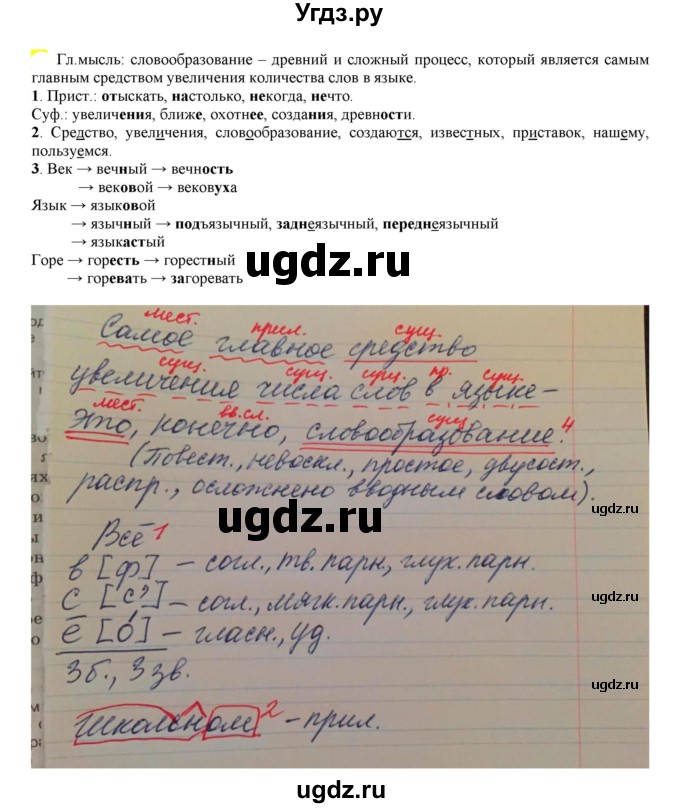 Угдз.ру
Гл.мысль: словообразование – древний и сложный процесс, который является самым
главным средством увеличения количества слов в языке.
1. Прист.: отыскать, настолько, некогда, нечто.
Суф.: увеличения, ближе, охотнее, создания, древности.
2. Средство, увеличения, словообразование, создаются, известных, приставок, нашему,
пользуемся.
3. Век → вечный → вечность
→ вековой → вековуха
Язык → языковой
→ язычный → подъязычный, заднеязычный, переднеязычный
→ языкастый
Горе → горесть → горестный
→ горевать → загоревать
ugdz.ru
мест. прил. сущ.
Самое главное средство
сущ. сущ. сущ. пр. сущ.
увеличения числа слов в языке –
мест. вв.сл. сущ.
это, конечно, словообразование.4
(Повест., невоскл., простое, двусост.,
распр., осложнено вводным словом).
ugdz.ru
Всё 1
в [ф] – согл., тв. парн., глух. парн.
с [с'] – согл., мягк. парн., глух. парн.
ё [о́] – гласн., уд.
3б., 3 зв.
ugdz.ru
школьном 2 – прил.
ugdz.ru
ugdz.ru
ugdz.ru
ugdz.ru
ugdz.ru